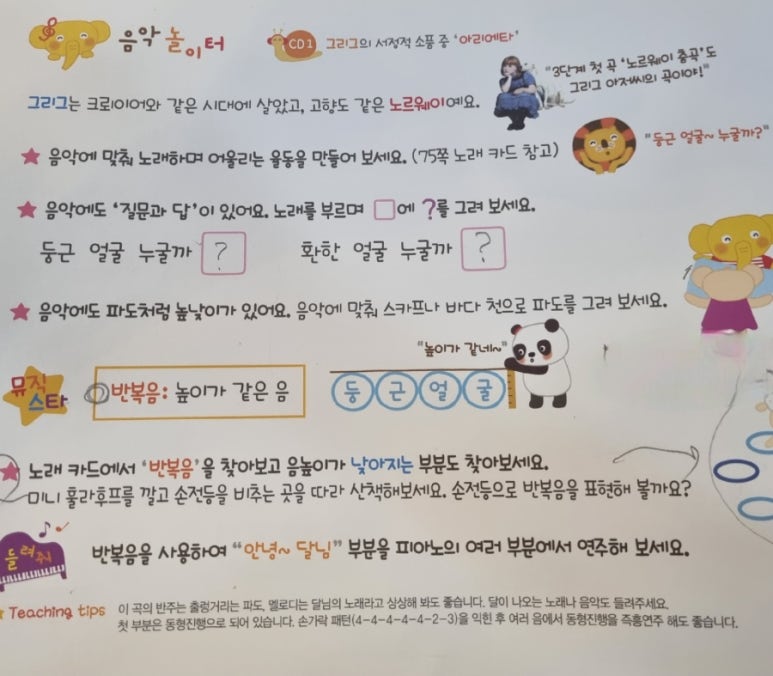 음악 놀이터
CD1 그리그의 서정적 소품 중 '아리에타'
"3단계 첫 곡 '노르웨이 춤곡'도
그리그 아저씨의 곡이야!"
그리그는 크로이어와 같은 시대에 살았고, 고향도 같은 노르웨이예요.
★ 음악에 맞춰 노래하며 어울리는 율동을 만들어 보세요. (75쪽 노래 카드 참고)
"둥근 얼굴~ 누굴까?"
★ 음악에도 '질문과 답'이 있어요. 노래를 부르며 □에 ?를 그려 보세요.
둥근 얼굴 누굴까 ? 환한 얼굴 누굴까 ?
★ 음악에도 파도처럼 높낮이가 있어요. 음악에 맞춰 스카프나 바다 천으로 파도를 그려 보세요.
"높이가 같네~"
뮤직
스타
반복음: 높이가 같은 음
둥 근 얼 굴
★ 노래 카드에서 '반복음'을 찾아보고 음높이가 낮아지는 부분도 찾아보세요.
미니 훌라후프를 깔고 손전등을 비추는 곳을 따라 산책해보세요. 손전등으로 반복음을 표현해 볼까요?
들려줘
반복음을 사용하여 "안녕~ 달님" 부분을 피아노의 여러 부분에서 연주해 보세요.
★ Teaching tips 이 곡의 반주는 출렁거리는 파도, 멜로디는 달님의 노래라고 상상해 봐도 좋습니다. 달이 나오는 노래나 음악도 들려주세요.
첫 부분은 동형진행으로 되어 있습니다. 손가락 패턴(4-4-4-4-4-2-3)을 익힌 후 여러 음에서 동형진행을 즉흥연주 해도 좋습니다.